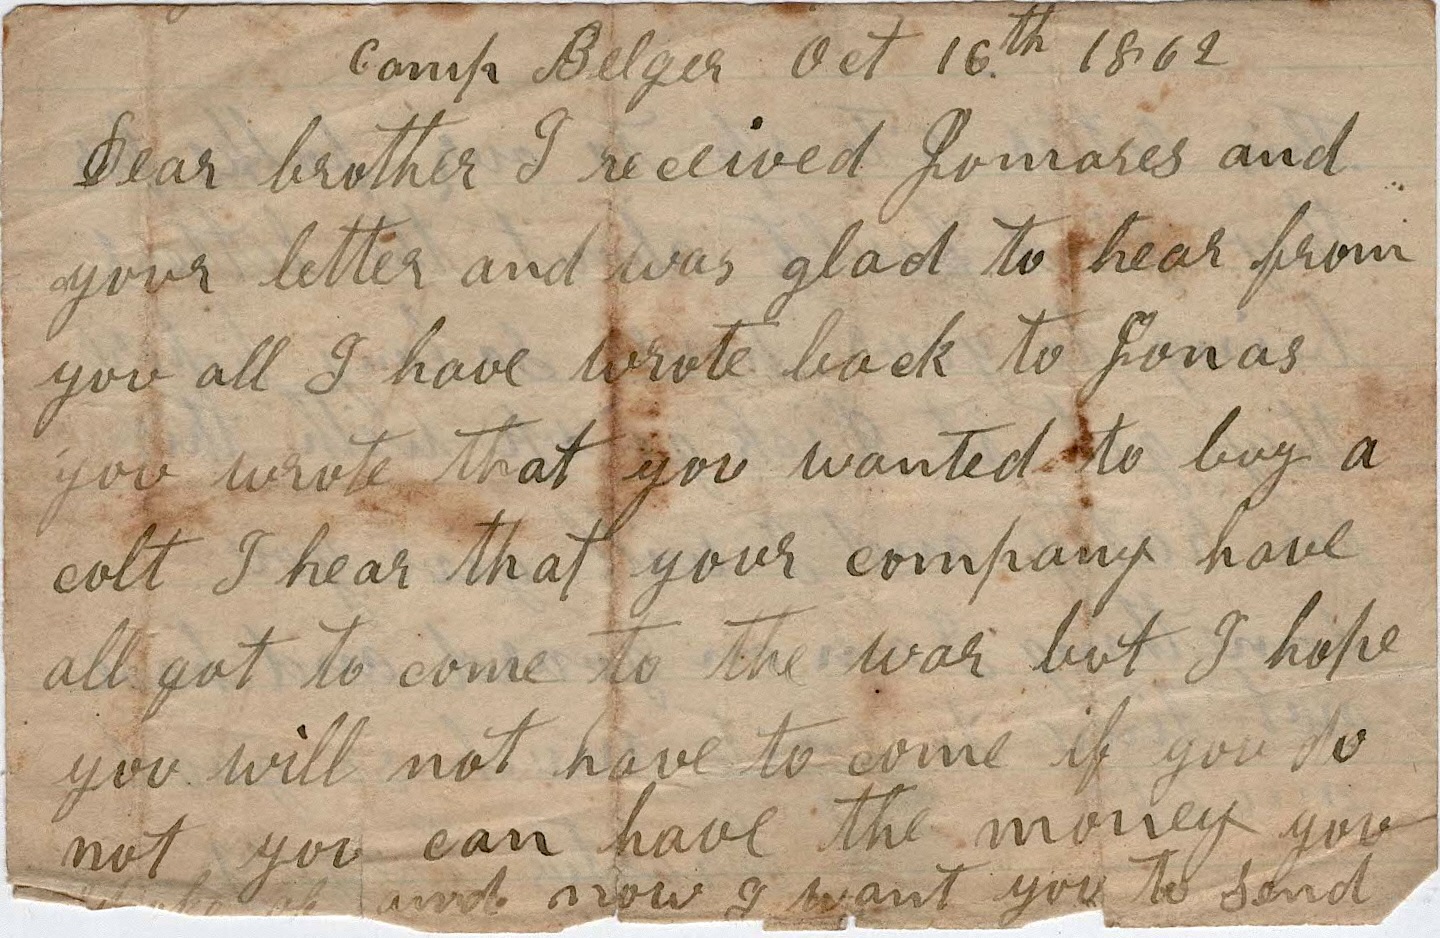 Camp Belger Oct 16th 1862
Dear brother I received Jomases and
your letter and was glad to hear from
you all I have wrote back to Jonas
you wrote that you wanted to buy a
colt I hear that your company have
all got to come to the war but I hope
you will not have to come if you do
not you can have the money you
and now I want you to send